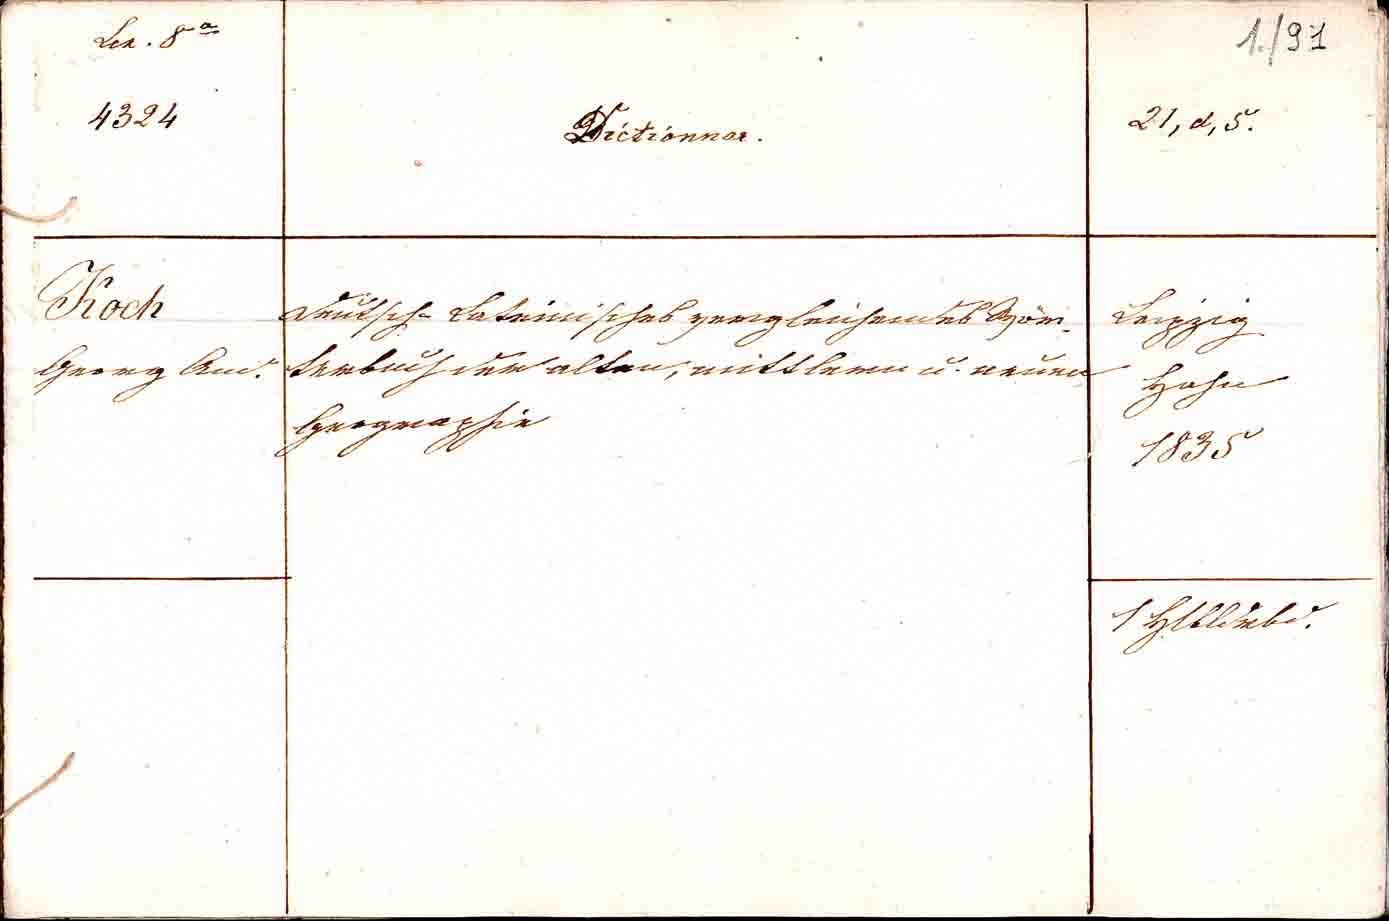 Lex. 8º
1./91
4324
Dictionnar.
21, d, 5.
Koch
Georg And.
Deutsch-Lateinisches vergleichendes Wör-
terbuch der alten, mittlern u. neuen
Geographie
Leipzig
Hahn
1835
1 Hlbldrbd.